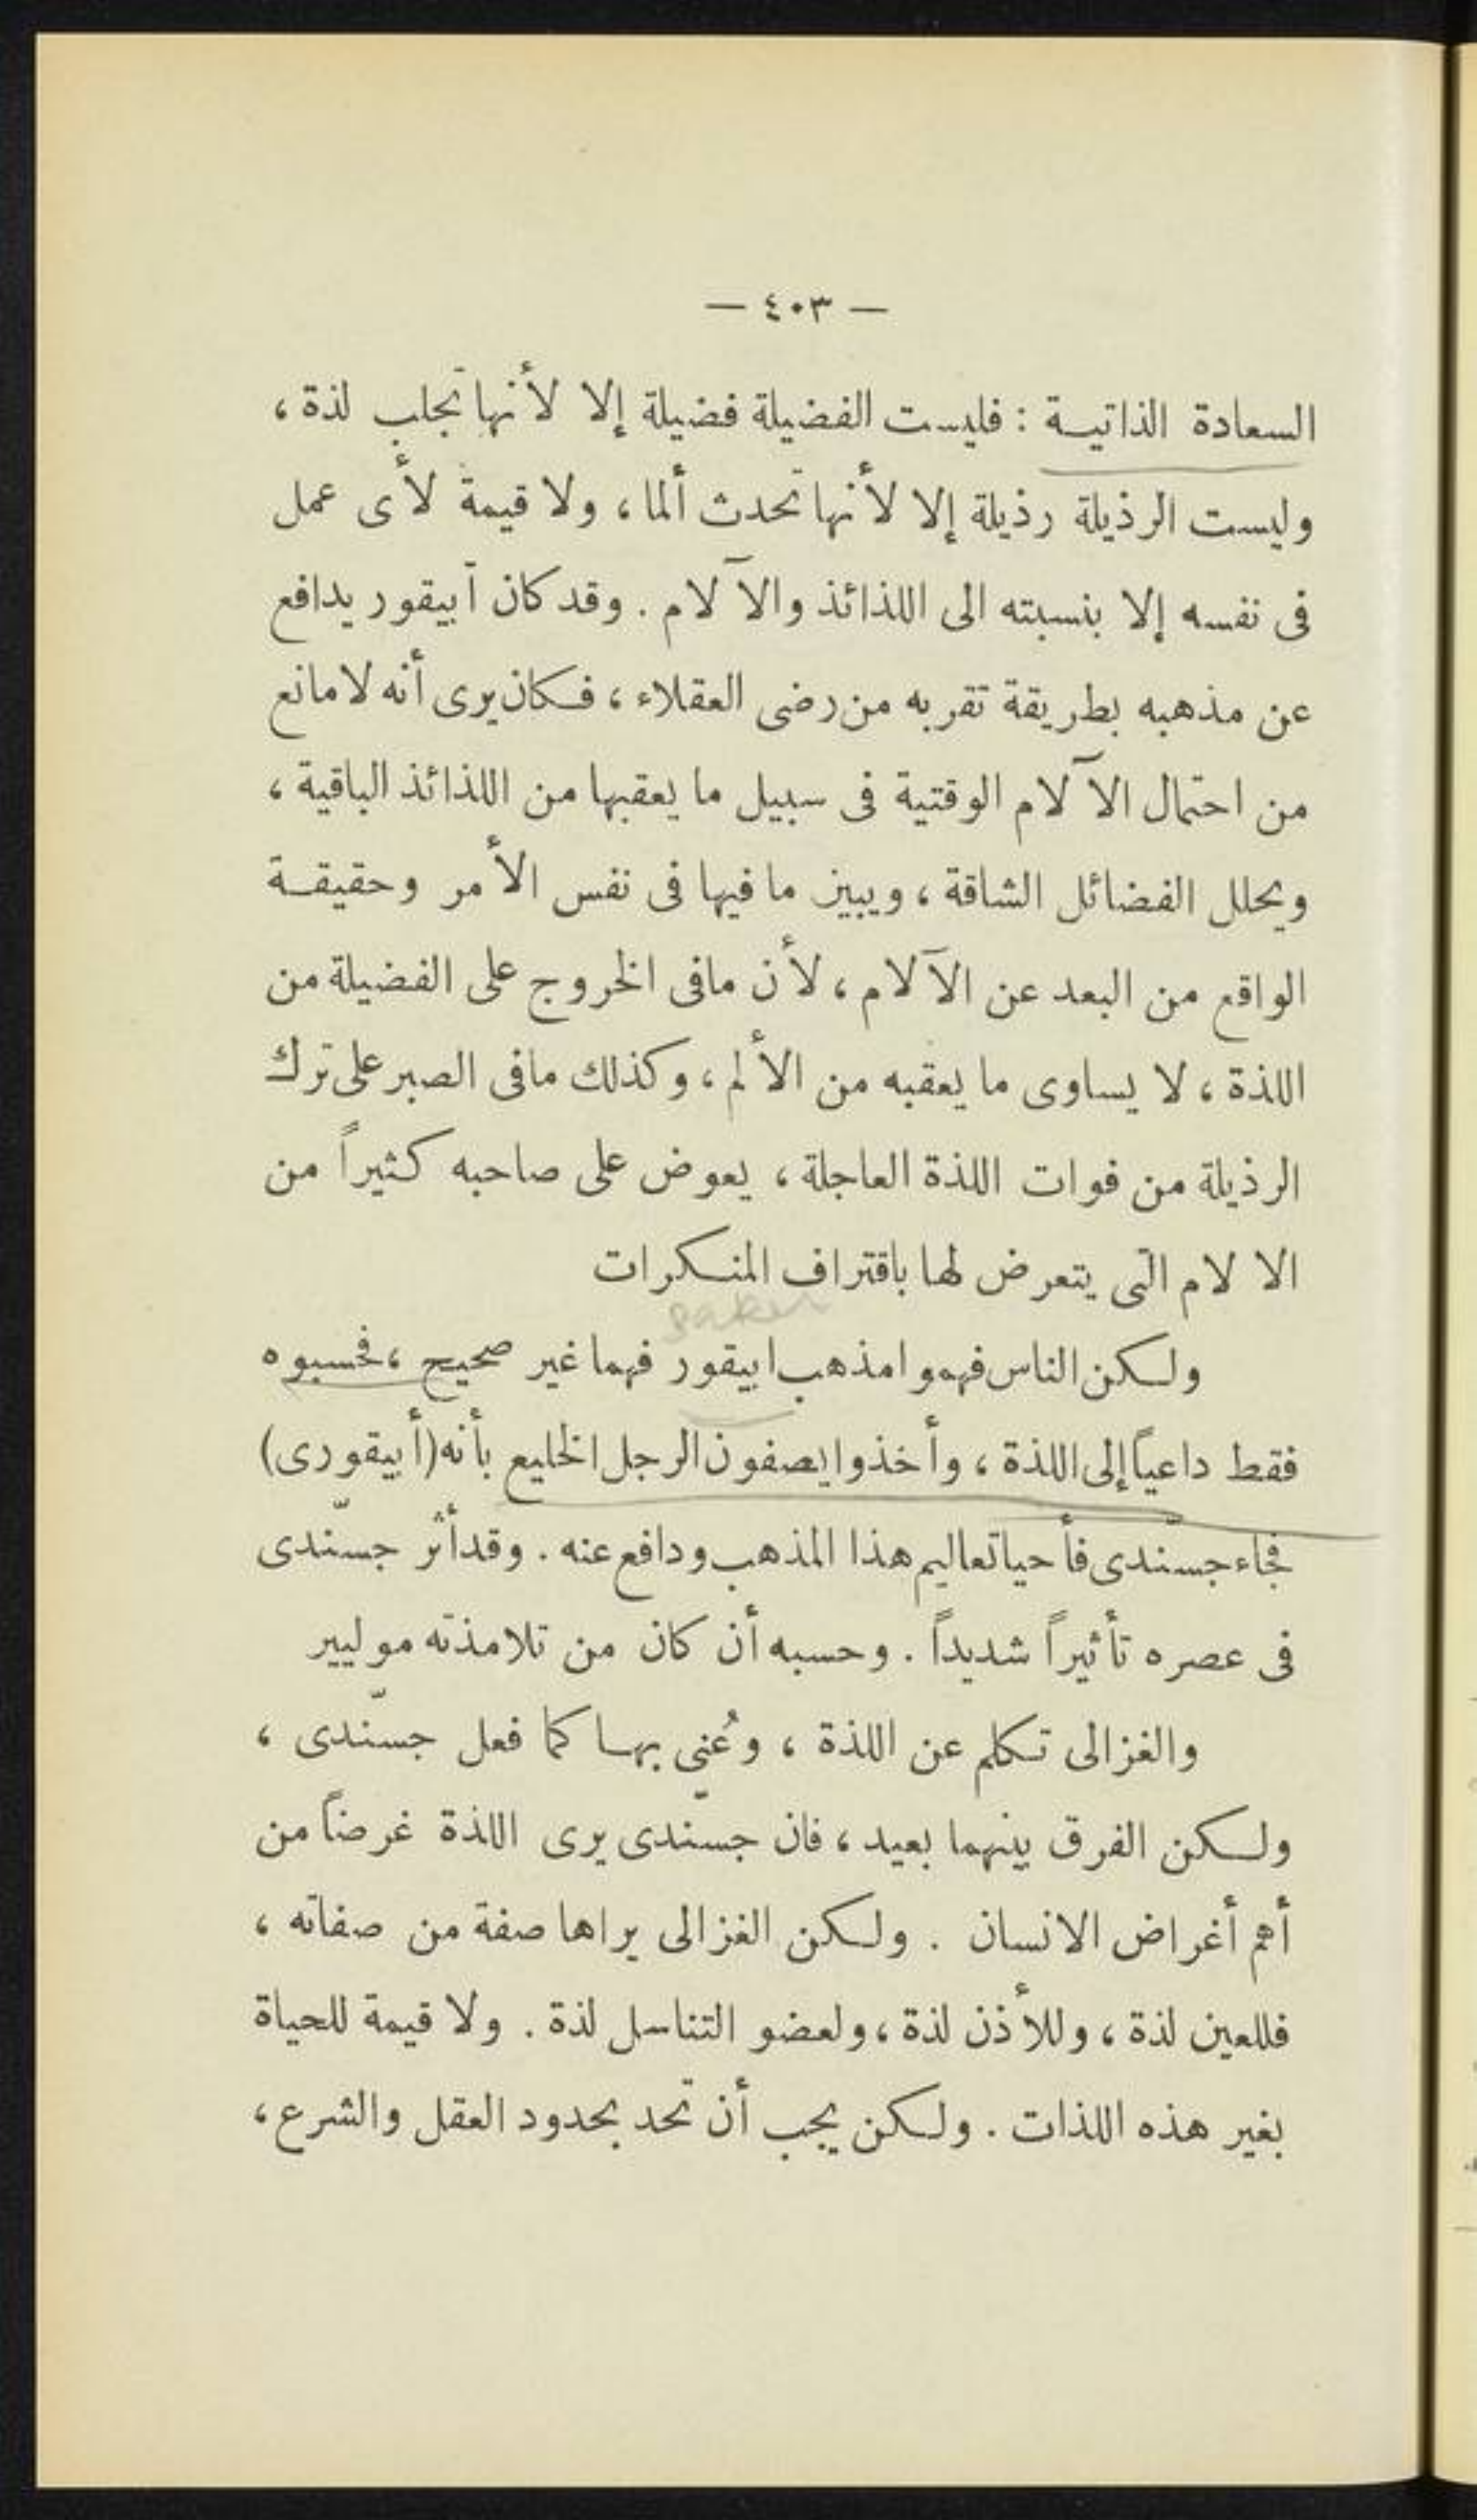 — ٤٠٣ —
السعادة الذاتية : فليست الفضيلة فضيلة إلا لأنها تجلب لذة ،
وليست الرذيلة رذيلة إلا لأنها تحدث ألما ، ولا قيمة لأى عمل
فى نفسه إلا بنسبته الى اللذائذ والآلام . وقد كان أبيقور يدافع
عن مذهبه بطريقة تقربه من رضى العقلاء ، فكان يرى أنه لا مانع
من احتمال الآلام الوقتية فى سبيل ما يعقبها من اللذائذ الباقية ،
ويحلل الفضائل الشاقة ، ويبين ما فيها فى نفس الأمر وحقيقة
الواقع من البعد عن الآلام ، لأن مافى الخروج على الفضيلة من
اللذة ، لا يساوى ما يعقبه من الألم ، وكذلك مافى الصبر على ترك
الرذيلة من فوات اللذة العاجلة ، يعوض على صاحبه كثيراً من
الالام التى يتعرض لها باقتراف المنكرات
ولكن الناس فهموا مذهب ابيقور فهما غير صحيح ، فحسبوه
فقط داعياً إلى اللذة ، وأخذوا يصفون الرجل الخليع بأنه (أبيقورى)
فجاء جسّندى فأحيا تعاليم هذا المذهب ودافع عنه . وقد أثر جسّندى
فى عصره تأثيراً شديداً . وحسبه أن كان من تلامذته موليير
والغزالى تكلم عن اللذة ، وعُنى بها كما فعل جسّندى ،
ولكن الفرق بينهما بعيد ، فان جسّندى يرى اللذة غرضاً من
أهم أغراض الانسان . ولكن الغزالى يراها صفة من صفاته ،
فللعين لذة ، وللأذن لذة ، ولعضو التناسل لذة . ولا قيمة للحياة
بغير هذه اللذات . ولكن يجب أن تحد بحدود العقل والشرع ،